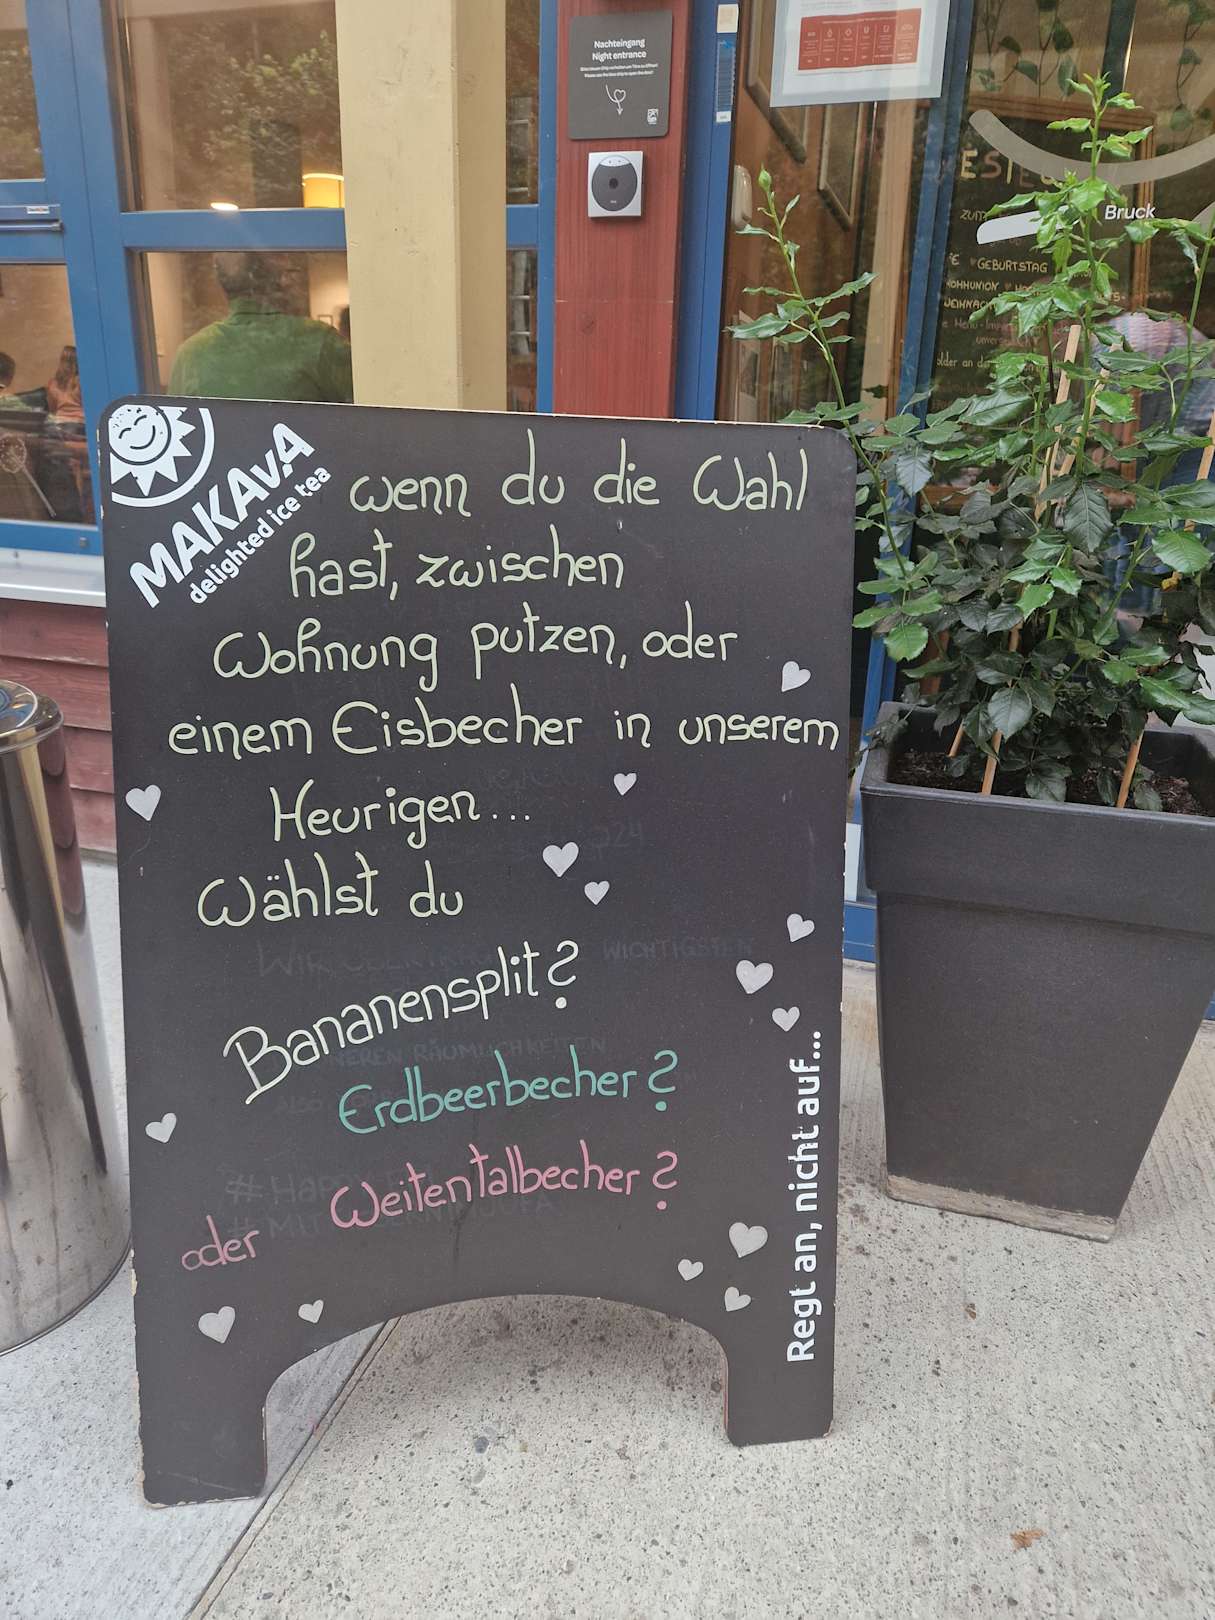 Nachteingang
Night entrance
Bruck
GEBURTSTAG
MAKAvA
delighted ice tea
wenn du die Wahl
hast, zwischen
Wohnung putzen, oder
einem Eisbecher in unserem
Heurigen...
Wählst du
Bananensplit?
Erdbeerbecher?
oder Weitentalbecher?
Regt an, nicht auf...
WICHTIGSTEN
RÄUMLICHKEITEN